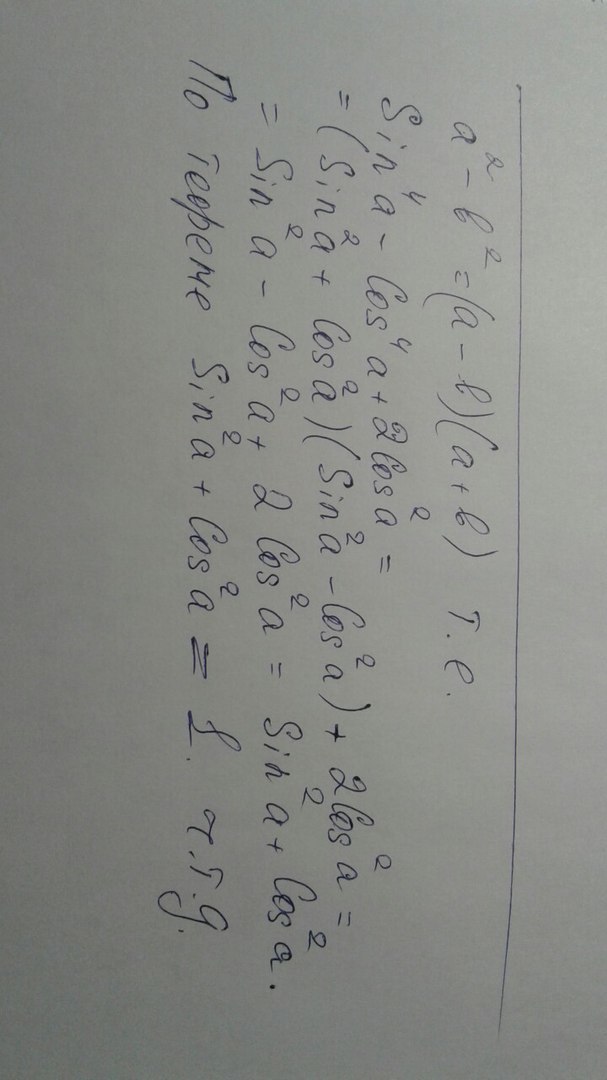 a² - b² = (a - b)(a + b) т.е.
Sin⁴a - Cos⁴a + 2Cos²a =
= (Sin²a + Cos²a)(Sin²a - Cos²a) + 2Cos²a =
= Sin²a - Cos²a + 2Cos²a = Sin²a + Cos²a.
По теореме Sin²a + Cos²a = 1. ч.т.д.